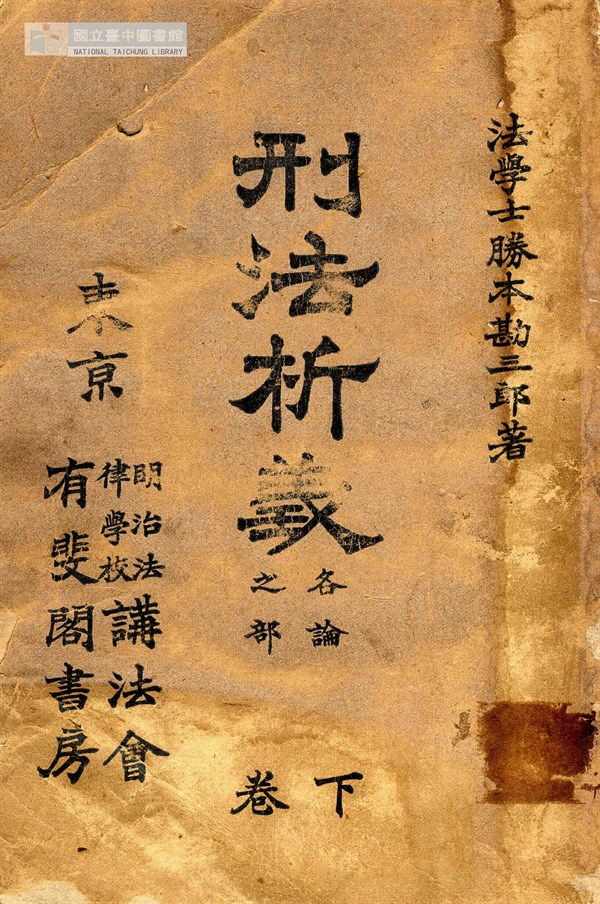 國立臺中圖書館
NATIONAL TAICHUNG LIBRARY
法學士勝本勘三郎著
刑法析義
各論
之部
下
卷
東京
明治法
律學校
講法會
有斐閣書房